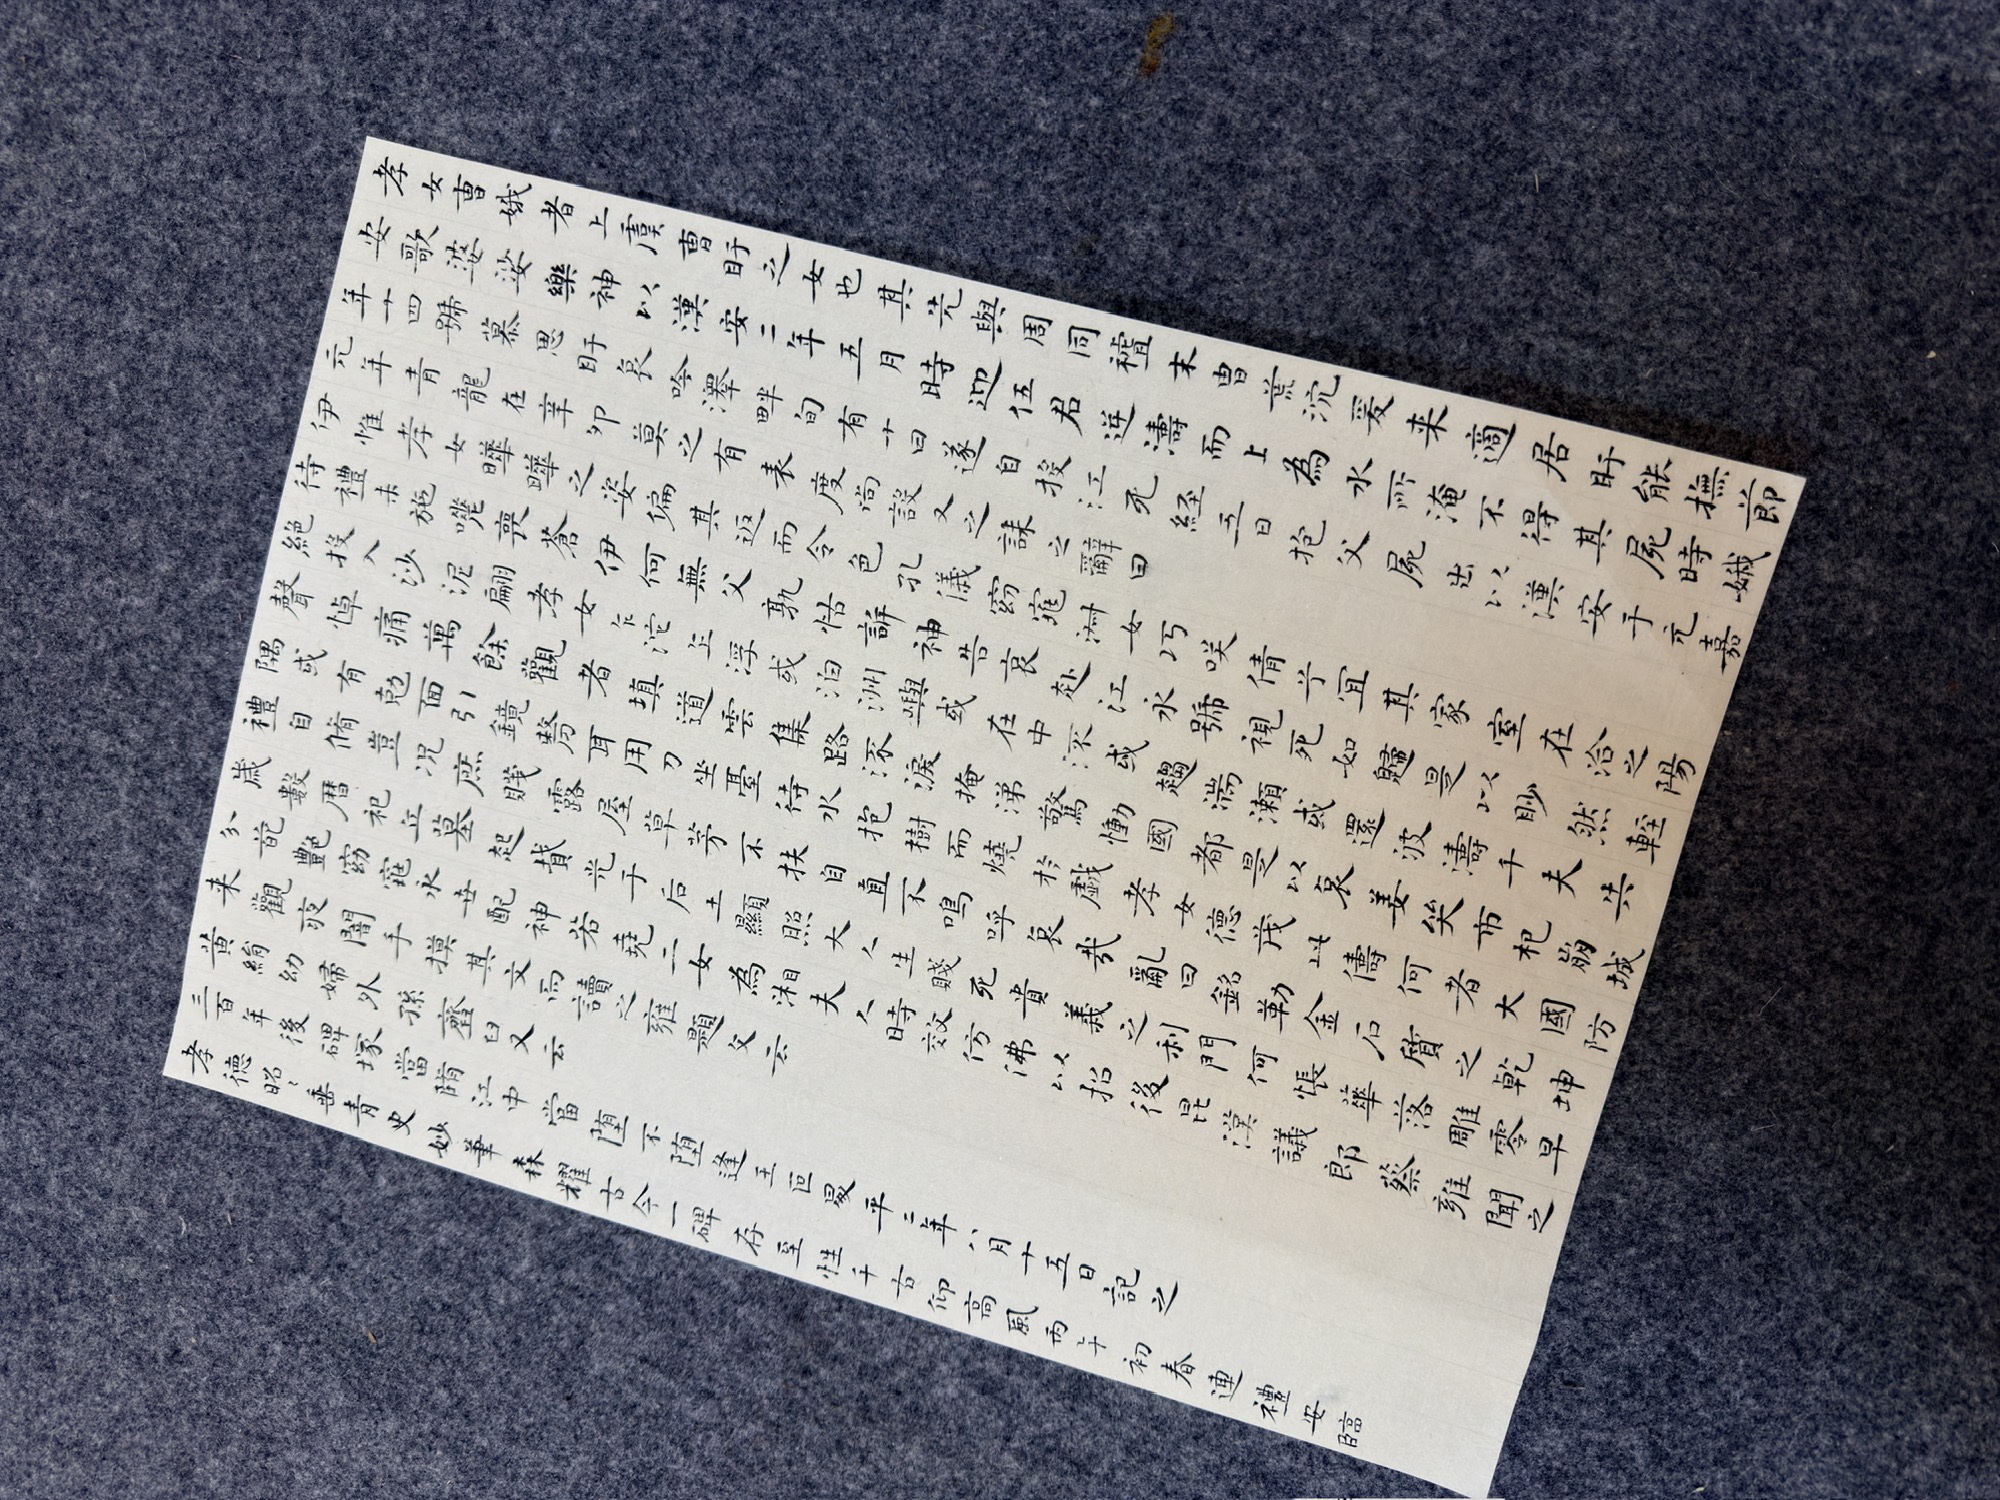 孝女曹娥者上虞曹盱之女也其先與周同禃末曹荒沉爰来適居盱能撫節
安歌婆娑樂神以漢安二年五月時迎伍君逆濤而上為水所淹不得其屍時娥
年十四號慕思盱哀吟澤畔旬有十日遂自投江死經五日抱父屍出以漢安于元嘉
元年青龍在辛卯莫之有表度尚設又之誄之辭曰
伊惟孝女曄曄之姿偏其返而令色孔儀窈窕淋女巧咲倩兮宜其家室在洽之陽
待禮未施嗟喪蒼伊何無父孰怙訴神告哀赴江永號視死如歸是以眇然輕
絕投入沙泥翩孝女乍沱上浮或泊洲嶼或在中流或趨湍瀬或還波濤千夫共
聲悼痛萬餘觀者填道雲集路深淚掩涕驚慟國都是以哀姜哭市杞崩城
隅或有尅面引鏡剺耳用刀坐臺待水抱樹而燒於戲孝女德茂此儔何者大國防
禮自脩豈况庶賤露屋草茅不扶自直不鳴呼哀哉亂曰銘勒金石質之乾坤
歲數暦祀立墓起墳光于后土顯照大人生賤死貴義之利門何悵華落雕零早
分葩艶窈窕永世配神若堯二女為湘夫人時效仿沸以招後昆漢議郎蔡雍聞之
来觀夜闇手摸其文而讀之雍題文云
黃絹幼婦外孫齏臼又云
三百年後碑塚當墮江中當堕不堕逢王叵曼平二年八月十五日記之
孝德昭〻垂青史妙筆森耀古今一碑存至性千古仰高風丙午初春連禮安臨